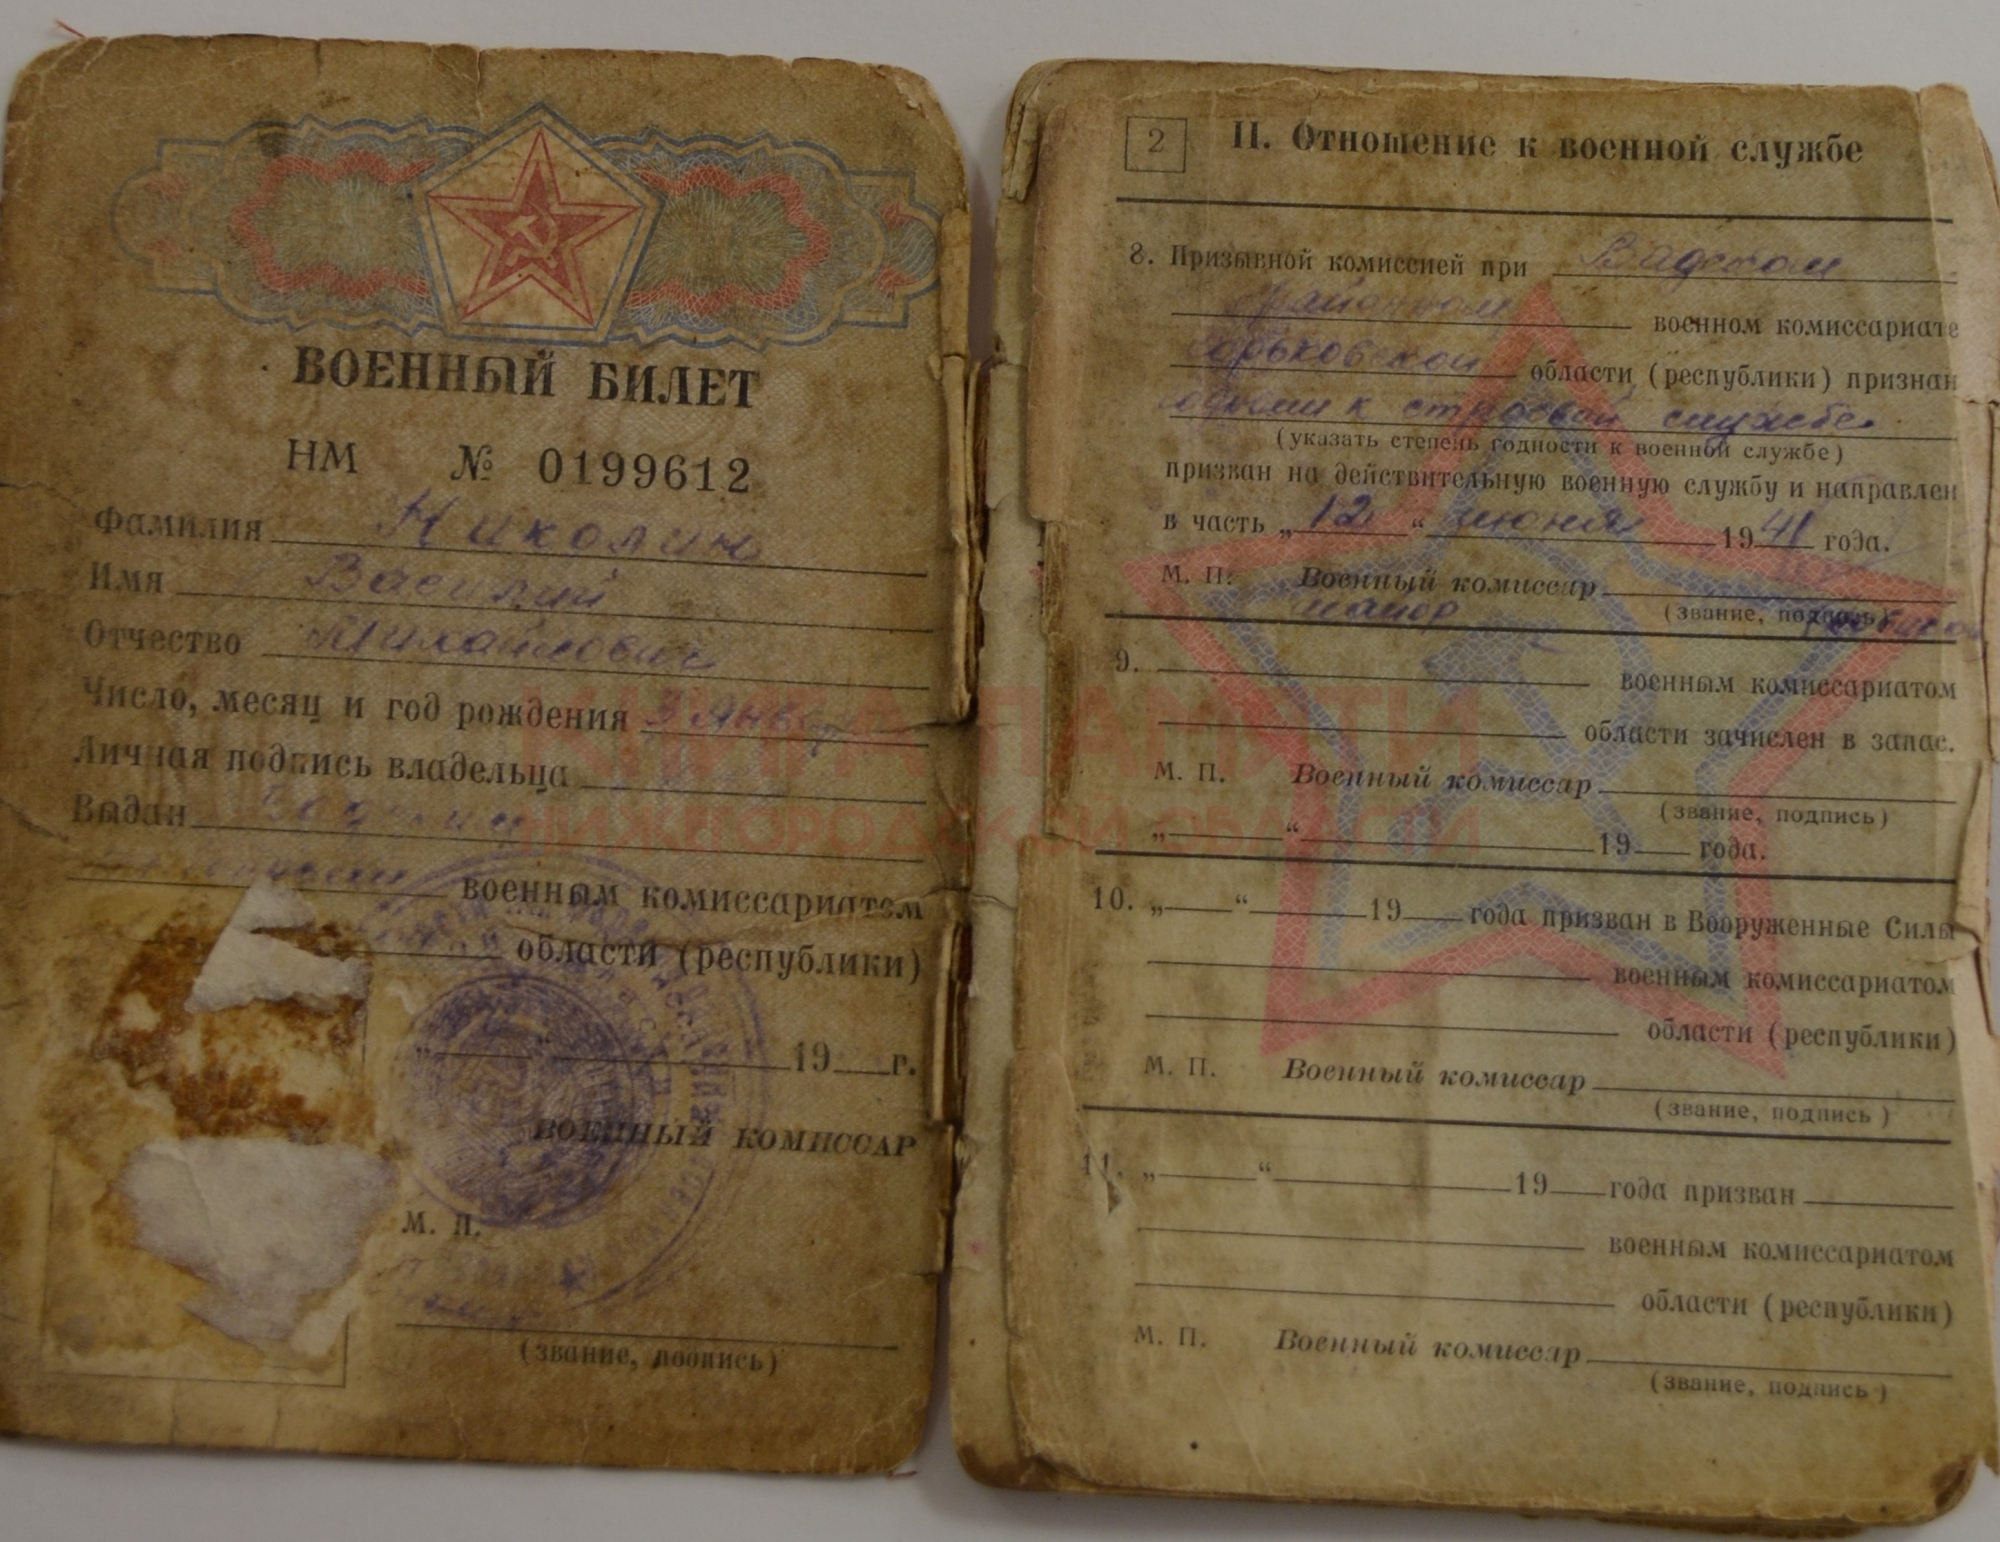 ВОЕННЫЙ БИЛЕТ
НМ № 0199612
Фамилия Николин
Имя Василий
Отчество Михайлович
Число, месяц и год рождения 3 Января
Личная подпись владельца
Выдан Вадским
военным комиссариатом
области (республики)
„ “ 19 г.
ВОЕННЫЙ КОМИССАР
М. П.
(звание, подпись)
2 II. Отношение к военной службе
8. Призывной комиссией при Вадском
районном военном комиссариате
Горьковской области (республики) признан
годным к строевой службе
(указать степень годности к военной службе)
призван на действительную военную службу и направлен
в часть „12“ июня 1941 года.
М. П. Военный комиссар
майор (звание, подпись)
9. военным комиссариатом
области зачислен в запас.
М. П. Военный комиссар
(звание, подпись)
„ “ 19 года.
10. „ “ 19 года призван в Вооруженные Силы
военным комиссариатом
области (республики)
М. П. Военный комиссар
(звание, подпись)
11. „ “ 19 года призван
военным комиссариатом
области (республики)
М. П. Военный комиссар
(звание, подпись)
КНИГА ПАМЯТИ
НИЖЕГОРОДСКОЙ ОБЛАСТИ